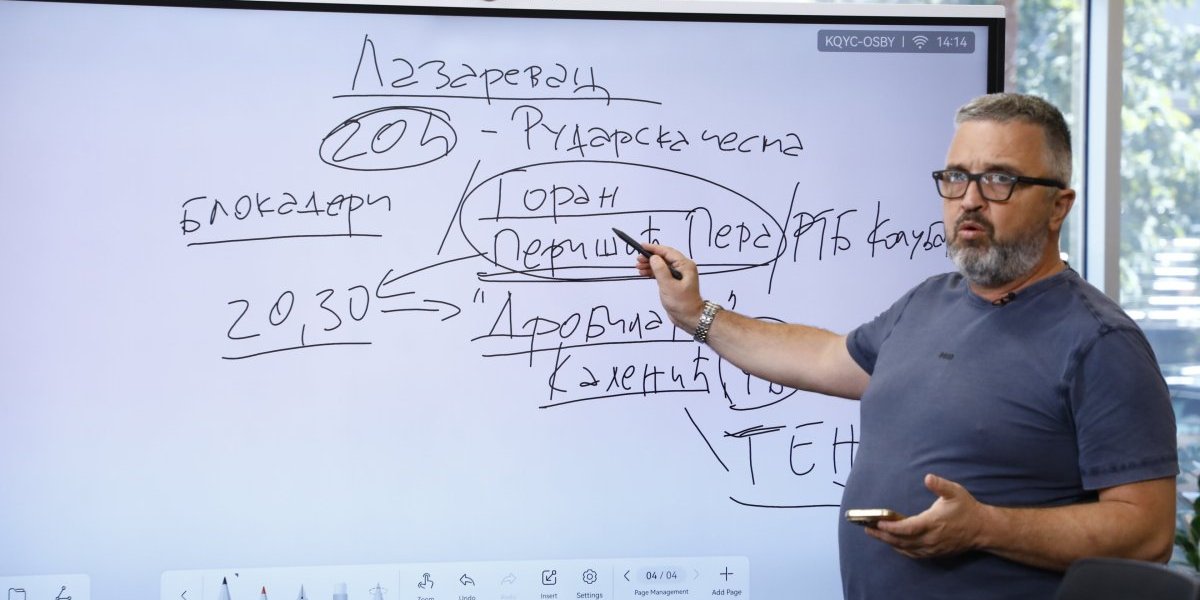 KQYC-OSBY | 14:14
Лазаревац
20h - Рударска чесма
Блокадери
Горан
Перишић Пера / РТБ Колуба
20,30
"Дробила
Каленић
ТЕН
Undo
Insert
Settings
04/04
Page Management
Add Page